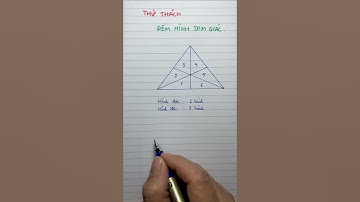 THỬ THÁCH
ĐẾM HÌNH TAM GIÁC
3 4
2 5
1 6
Hình đơn : 6 hình
Hình lớn : 1 hình